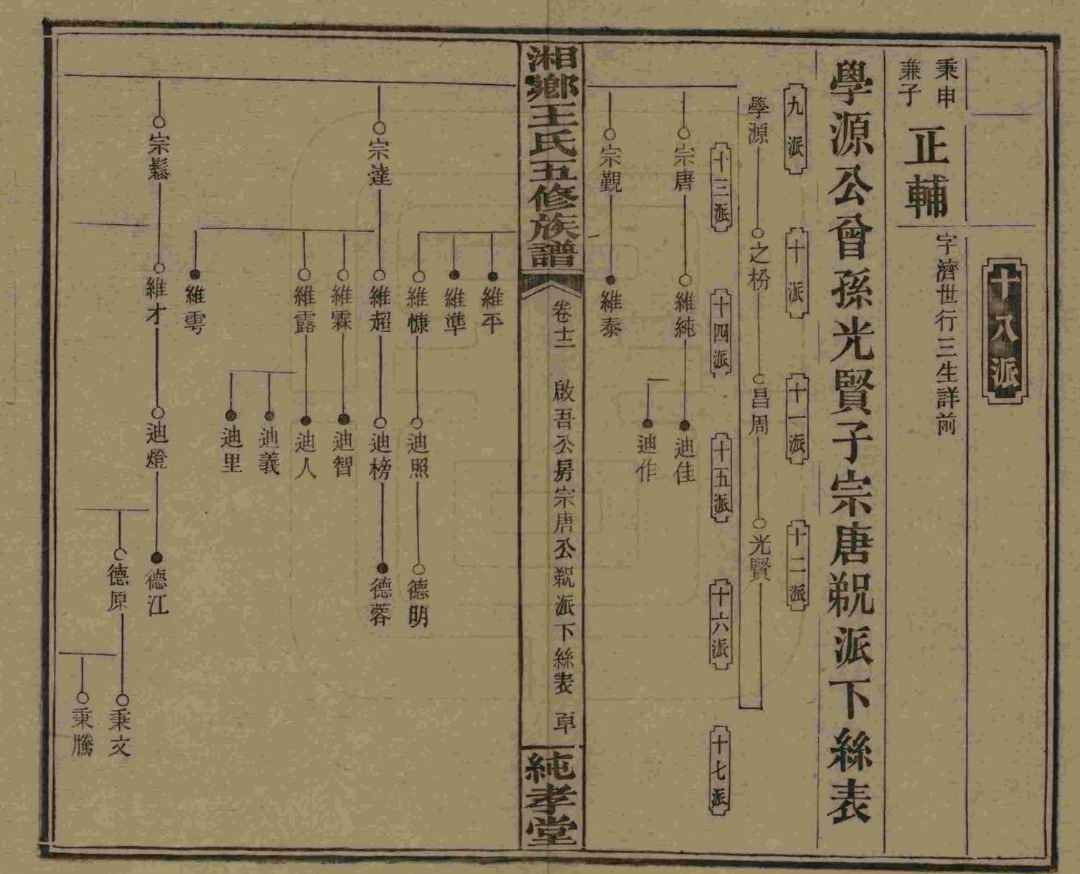 十八派
秉申
兼子
正輔
字濟世行三生詳前
學源公曾孫光賢子宗唐覜派下絲表
九派
十派
十一派
十二派
學源
之枌
昌周
光賢
十三派
十四派
十五派
十六派
十七派
宗唐
維純
迪佳
迪作
宗覲
維泰
湘鄉王氏五修族譜
卷十二
啟吾公房宗唐公覜派下絲表
純孝堂
維平
維準
維慷
迪照
德明
宗達
維超
迪榜
德蓉
維霖
迪智
維露
迪人
迪義
迪里
維雩
宗鬆
維才
迪燈
德江
德原
秉文
秉騰